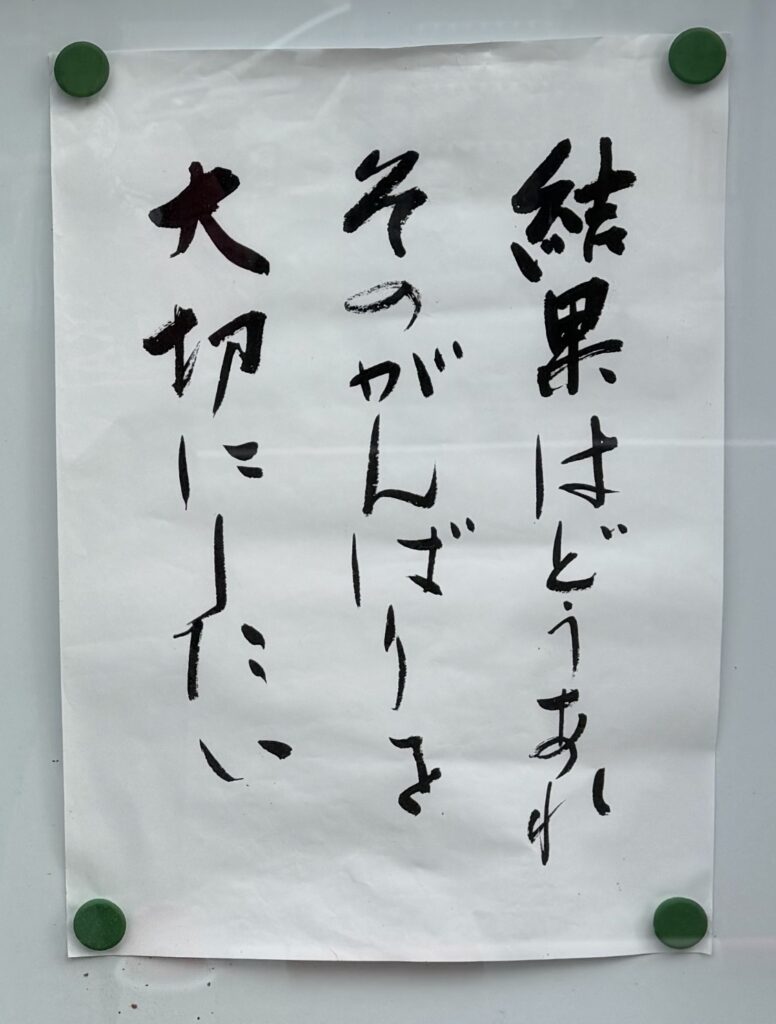 結果はどうあれ
そのがんばりを
大切にしたい